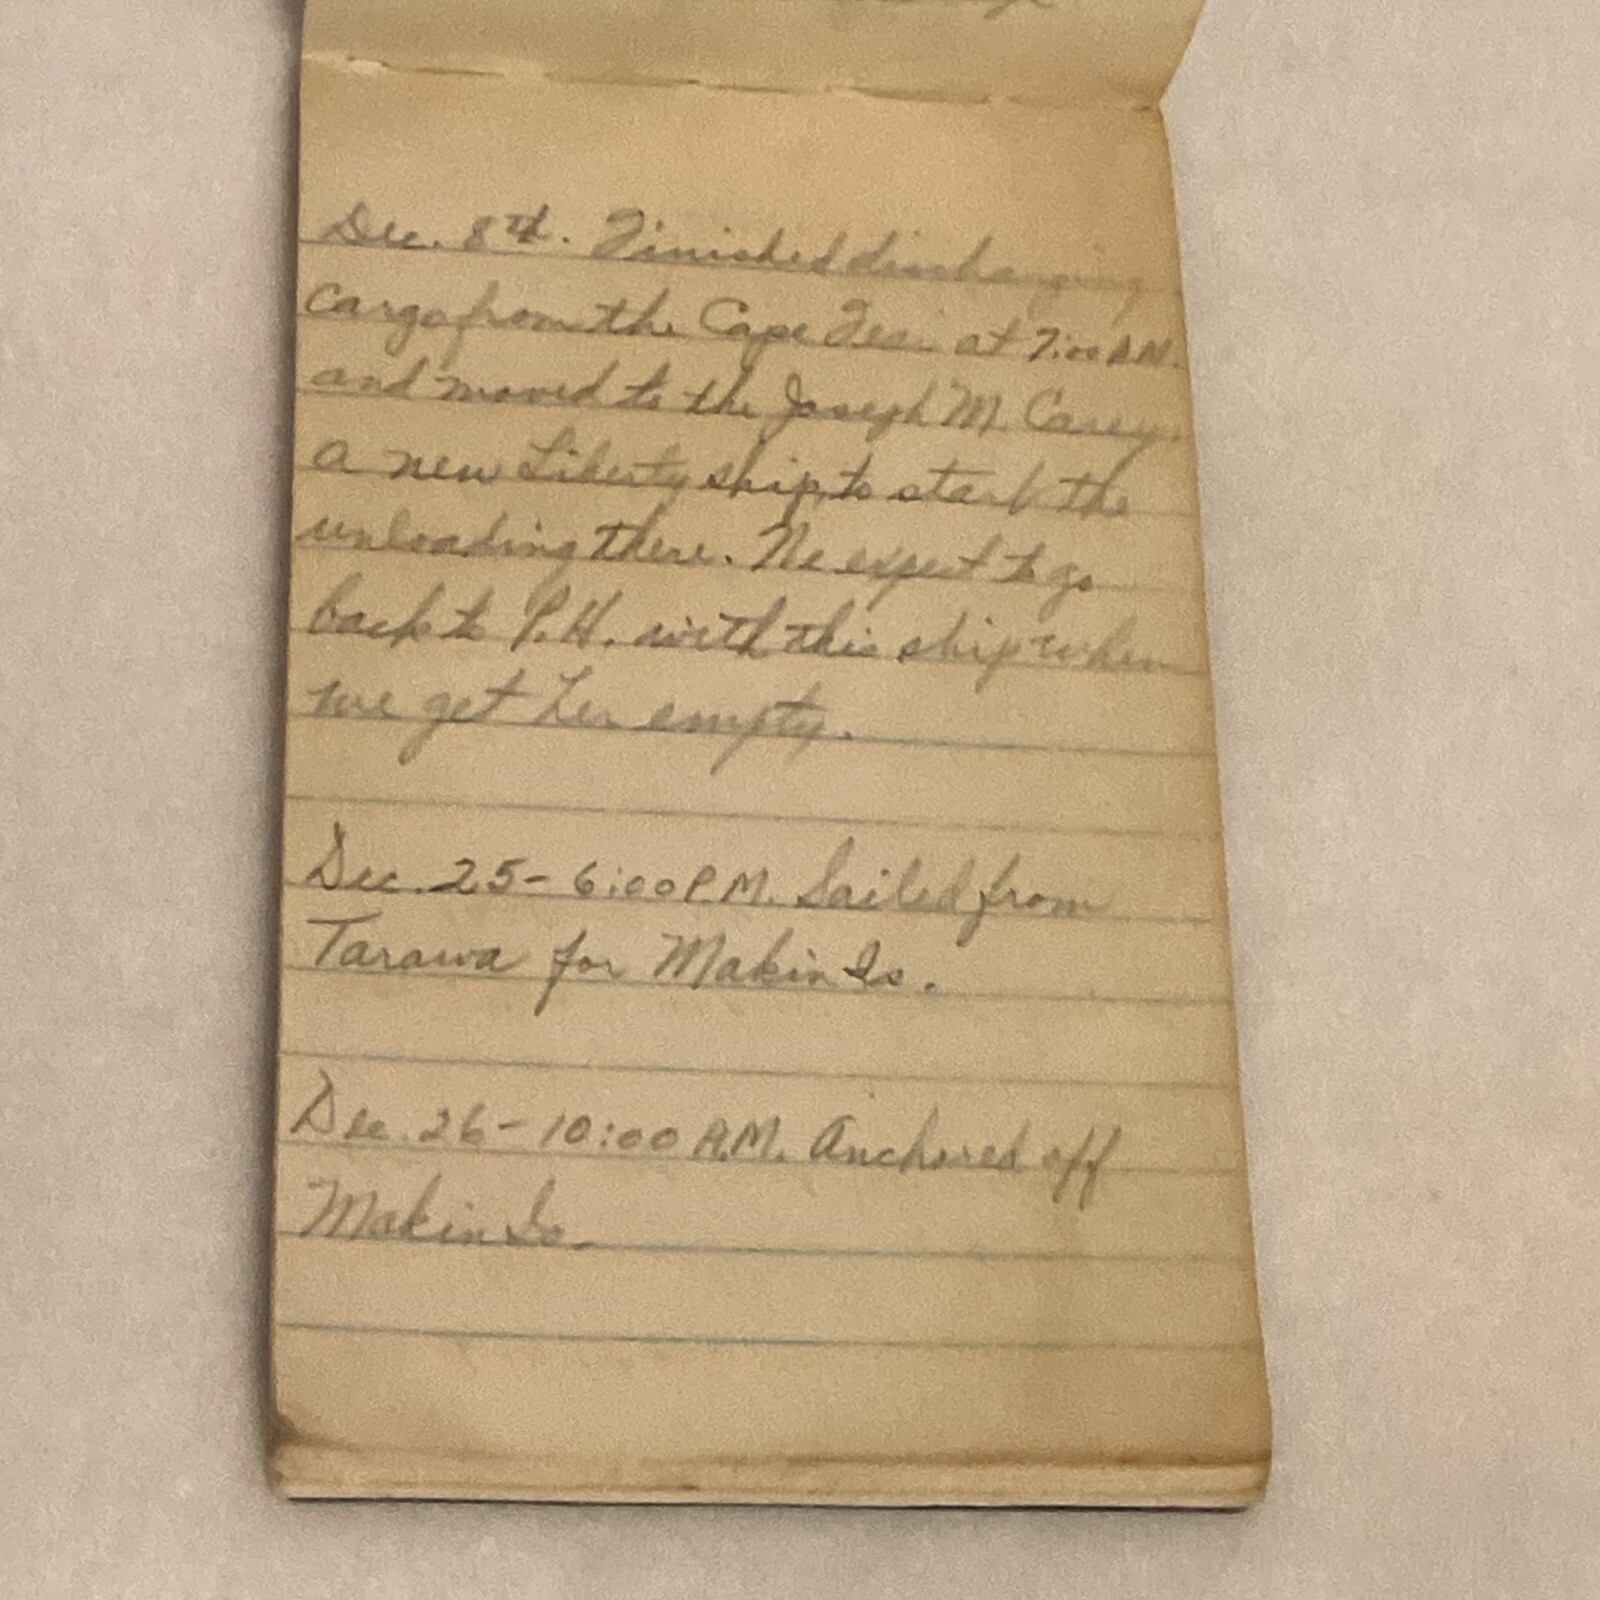 Dec. 8th. Finished discharging
cargo from the Cape at 7:00 A.M.
and moved to the Joseph M. Carey,
a new Liberty ship, to start the
unloading there. We expect to go
back to P.H. with this ship when
we get her empty.
Dec. 25 - 6:00 P.M. Sailed from
Tarawa for Makin Is.
Dec. 26 - 10:00 A.M. Anchored off
Makin Is.